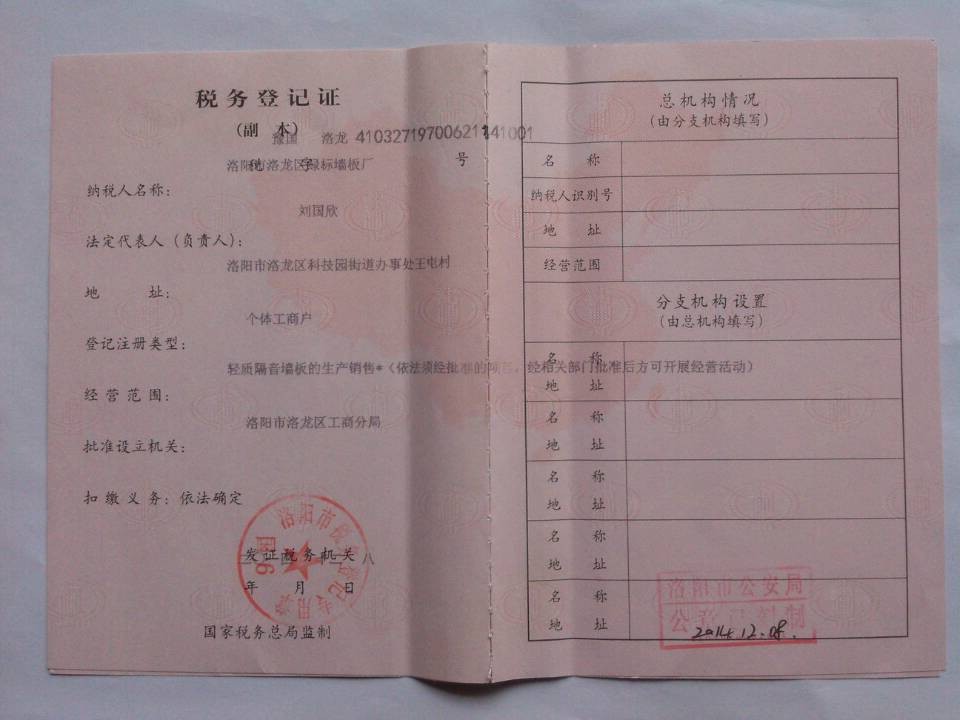 税务登记证
(副 本)
豫国 洛龙 41032719700621141001
税 字 号
洛阳市洛龙区绿标墙板厂
纳税人名称：
刘国欣
法定代表人（负责人）：
洛阳市洛龙区科技园街道办事处王屯村
地 址：
个体工商户
登记注册类型：
轻质隔音墙板的生产销售*（依法须经批准的项目，经相关部门批准后方可开展经营活动）
经 营 范 围：
洛阳市洛龙区工商分局
批准设立机关：
扣 缴 义 务：依法确定
发证税务机关
年 月 日
国家税务总局监制
总机构情况
（由分支机构填写）
名 称
纳税人识别号
地 址
经营范围
分支机构设置
（由总机构填写）
名 称
地 址
名 称
地 址
名 称
地 址
名 称
地 址
名 称
地 址
洛阳市公安局
2014.12.08.